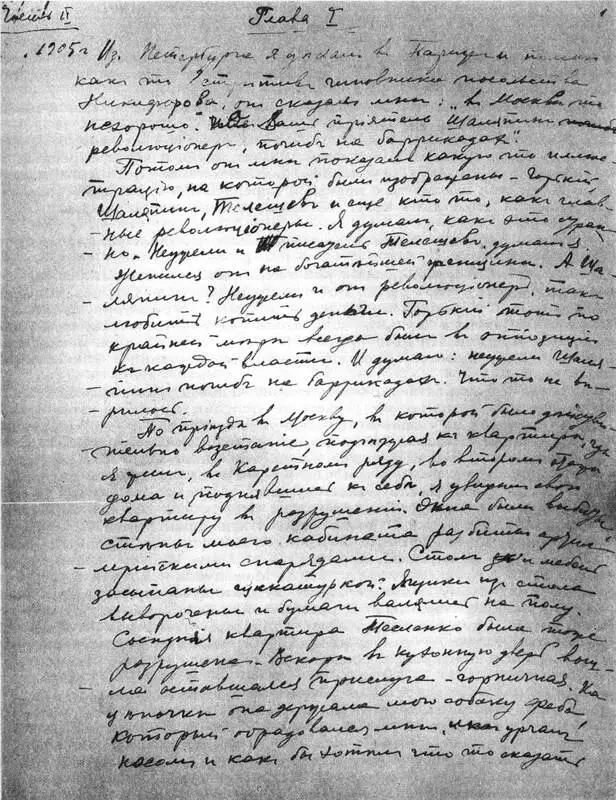 Часть II
Глава I
1905 г Из Петербурга я в Париж
какъ то чиновника посольства
онъ сказалъ мнѣ: „въ Москвѣ то
нехорошо. Вашъ прiятель Шаляпинъ
революцiонеръ, погибъ на баррикадахъ".
Потомъ онъ мнѣ показалъ какую то иллюс
трацiю, на которой были изображены – Горькiй,
Шаляпинъ, Телешевъ и еще кто то, какъ глав
ные революцiонеры. Я думалъ, какъ это стран
но. Неужели и писатель Телешевъ, думалъ я.
Женился онъ на богатѣйшей женщинѣ. А Ша
ляпинъ? Неужели и онъ революцiонеръ, такъ
любитъ копить деньги. Горькiй тотъ по
крайней мѣрѣ всегда былъ въ оппозицiи
къ каждой власти. И думалъ: неужели Шаля
пинъ погибъ на баррикадахъ. Что то не вѣ
рилось.
По прiѣздѣ въ Москву, въ которой было действи
тельно возстанiе подъѣзжая къ квартирѣ, гдѣ
я жилъ, въ Каретномъ ряду, во второмъ
дома и поднявшись къ себѣ, я увидалъ свою
квартиру въ разрушенiи. Окна были выбиты,
стѣны моего кабинета разбиты артил
лерiйскими снарядами. Столъ и мебель
засыпаны щукатуркой. Ящики изъ стола
выворочены и бумаги валялись на полу.
Сосѣдняя квартира Тесленко была тоже
разрушена. Вскорѣ въ кухонную дверь вош
ла оставшаяся прислуга – горничная. На
цѣпочкѣ она держала мою собаку
который обрадовался мнѣ, урчалъ
носомъ и какъ бы хотѣлъ что то сказать